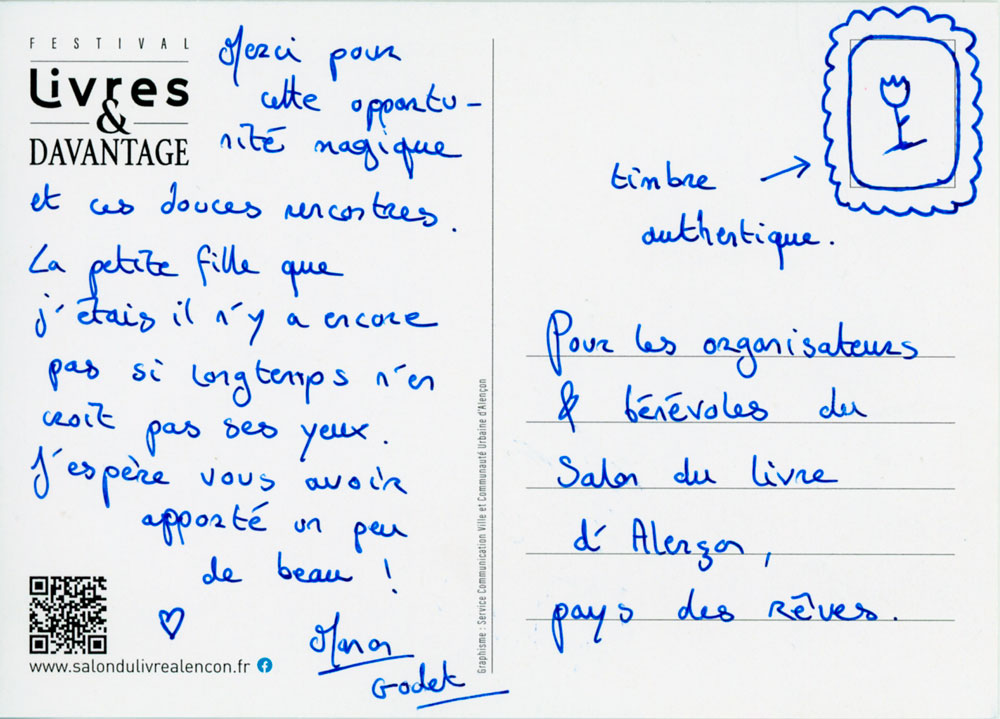 FESTIVAL
Livres
&
DAVANTAGE
Merci pour
cette opportu-
nité magique
et ces douces rencontres.
La petite fille que
j'étais il n'y a encore
pas si longtemps n'en
croit pas ses yeux.
J'espère vous avoir
apporté un peu
de beau !
♡
Manon
Godet
www.salondulivrealencon.fr
Graphisme : Service Communication Ville et Communauté Urbaine d'Alençon
timbre →
authentique.
Pour les organisateurs
& bénévoles du
Salon du livre
d'Alençon,
pays des rêves.